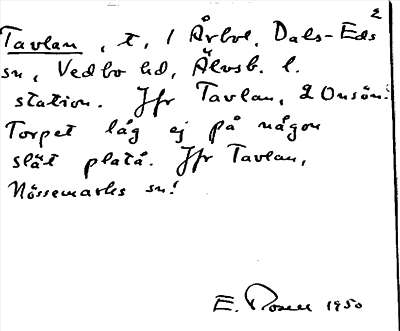 2
Tavlan, t, / Årbol, Dals-Eds
sn, Vedbo hd, Älvsb. l.
station. Jfr Tavlan, 2 Onsön!
Torpet låg ej på någon
slät platå. Jfr Tavlan,
Nössemarks sn!
E. Rosell 1950